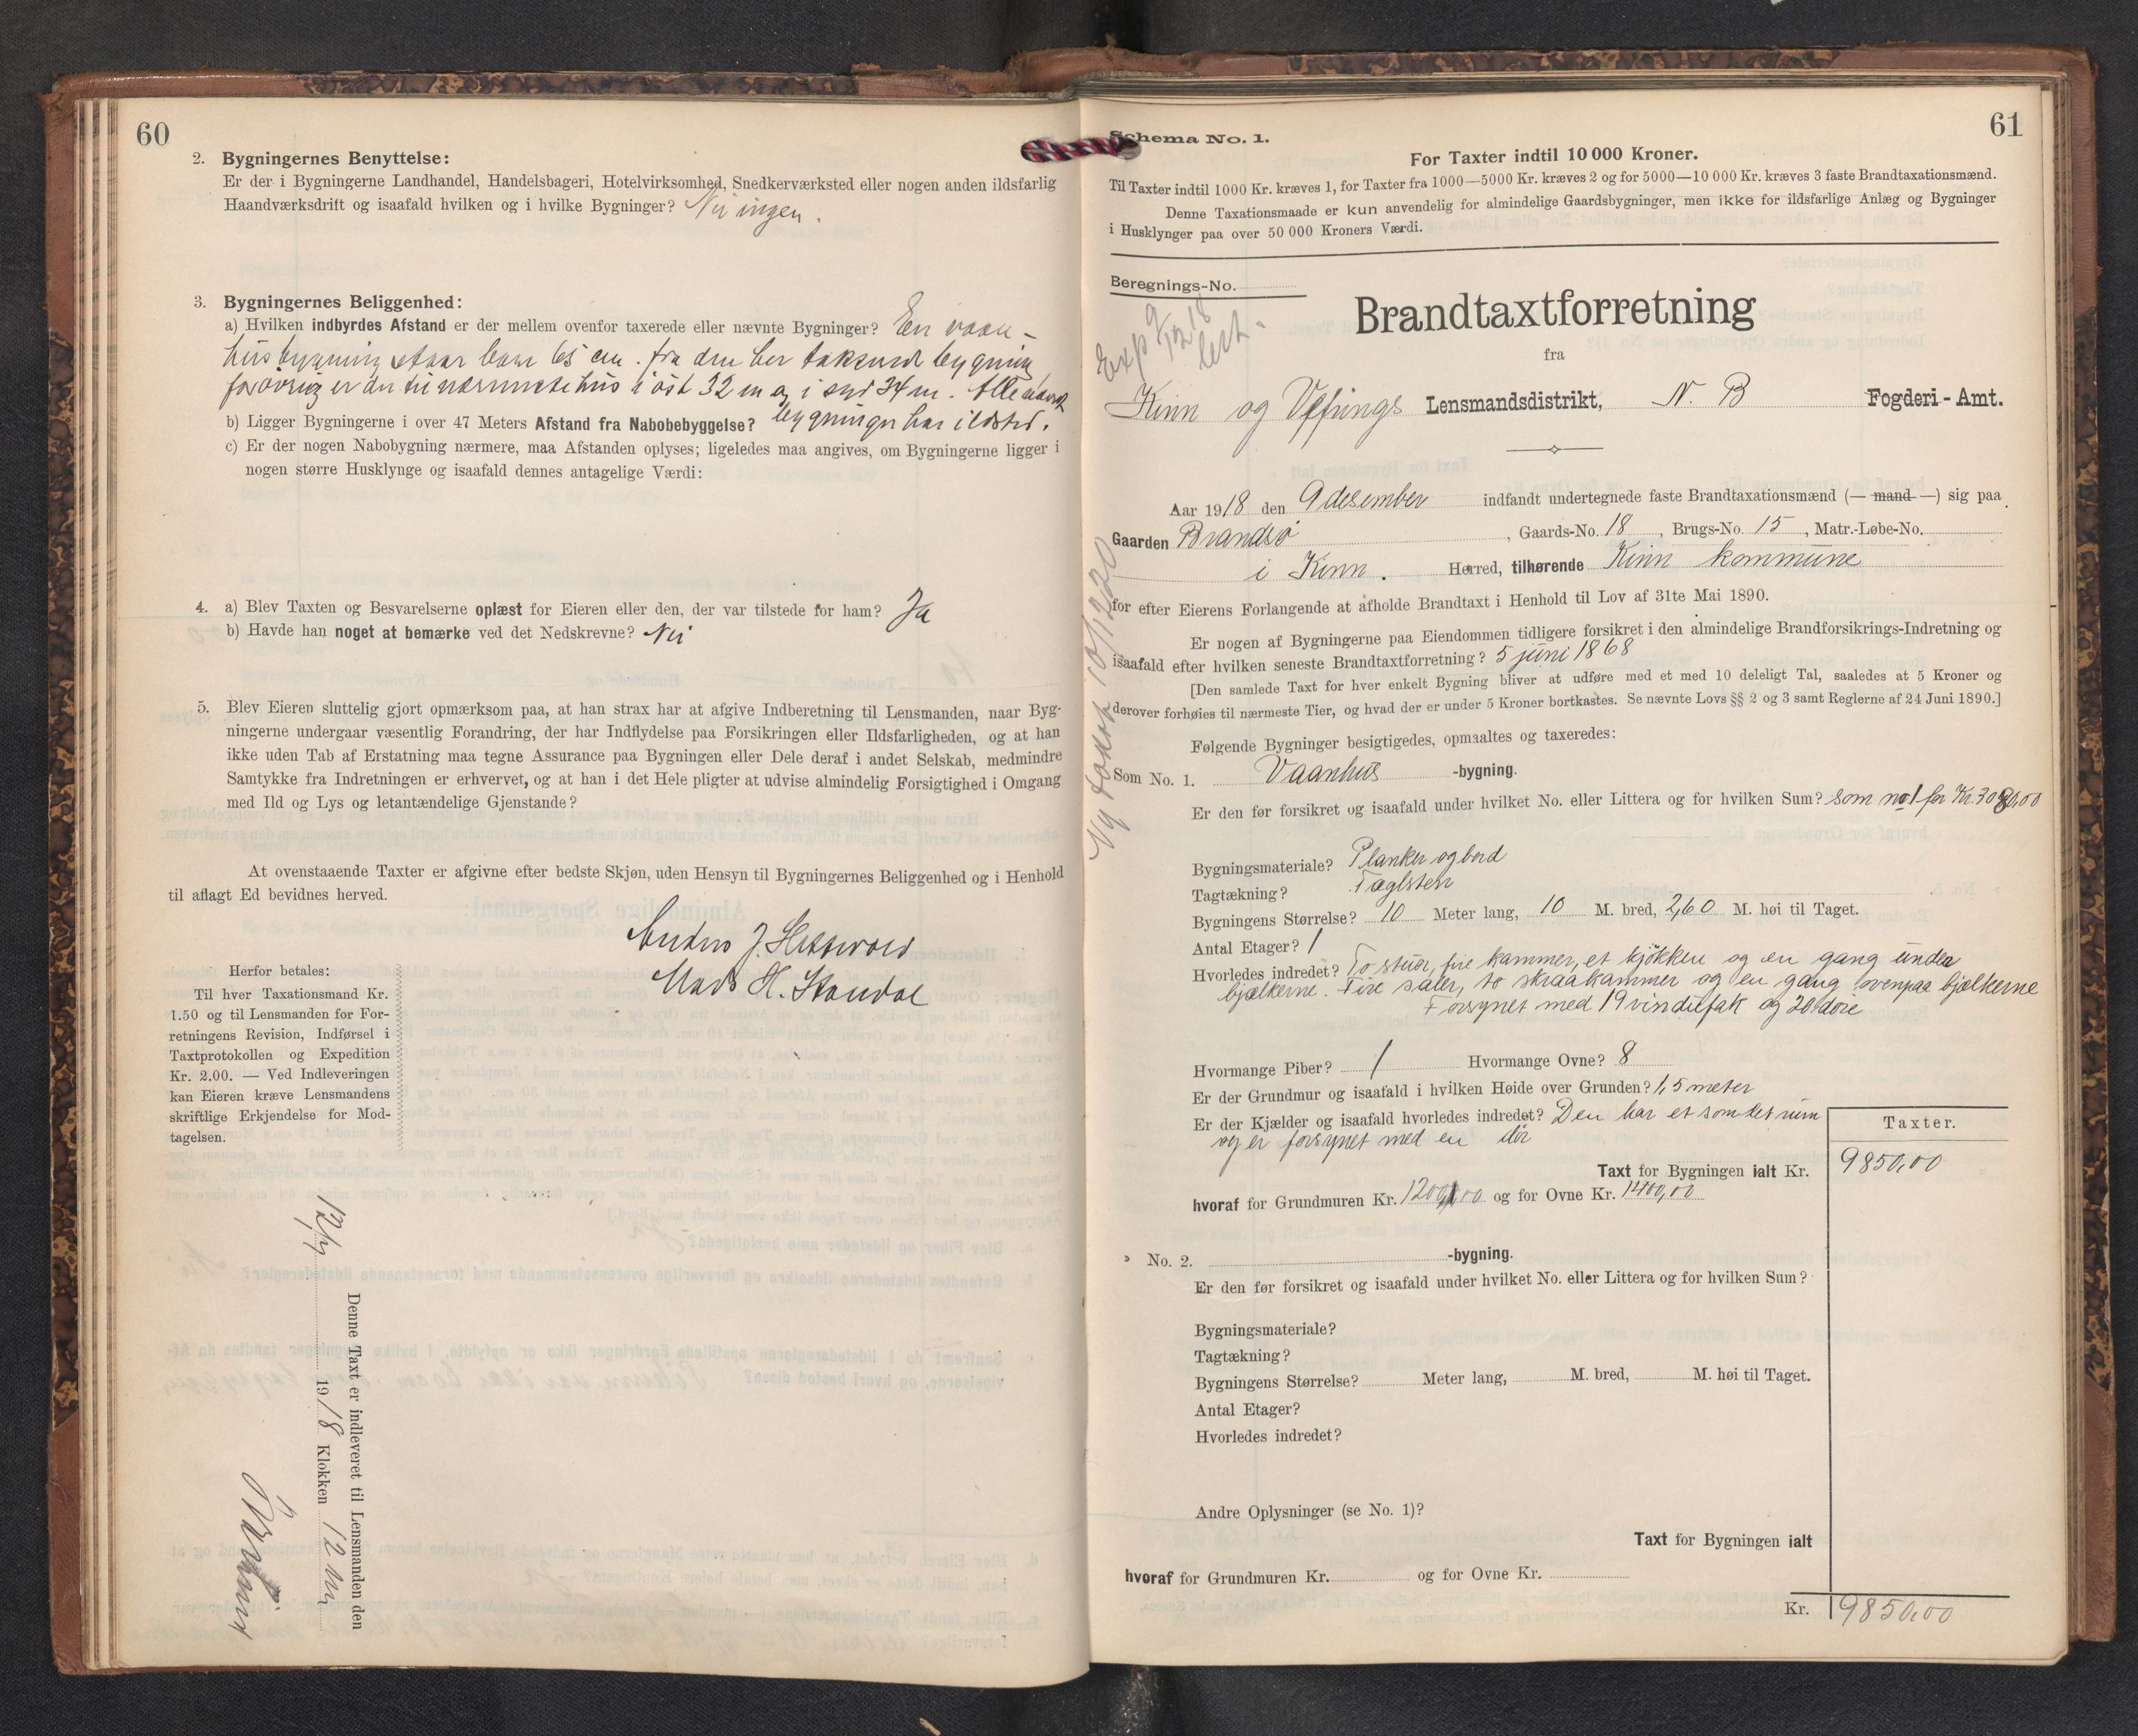 60
2. Bygningernes Benyttelse:
Er der i Bygningerne Landhandel, Handelsbageri, Hotelvirksomhed, Snedkerværksted eller nogen anden ildsfarlig
Haandværksdrift og isaafald hvilken og i hvilke Bygninger? Nei ingen.
3. Bygningernes Beliggenhed:
a) Hvilken indbyrdes Afstand er der mellem ovenfor taxerede eller nævnte Bygninger? En vaan-
husbygning staar bare 65 cm. fra den her takserede bygning
forøvrig er der til nærmeste hus i øst 32 m og i syd 34 m. Alle nævnte
b) Ligger Bygningerne i over 47 Meters Afstand fra Nabobebyggelse? bygninger har ildsted.
c) Er der nogen Nabobygning nærmere, maa Afstanden oplyses; ligeledes maa angives, om Bygningerne ligger i
nogen større Husklynge og isaafald dennes antagelige Værdi:
4. a) Blev Taxten og Besvarelserne oplæst for Eieren eller den, der var tilstede for ham? Ja
b) Havde han noget at bemærke ved det Nedskrevne? Nei
5. Blev Eieren sluttelig gjort opmærksom paa, at han strax har at afgive Indberetning til Lensmanden, naar Byg-
ningerne undergaar væsentlig Forandring, der har Indflydelse paa Forsikringen eller Ildsfarligheden, og at han
ikke uden Tab af Erstatning maa tegne Assurance paa Bygningen eller Dele deraf i andet Selskab, medmindre
Samtykke fra Indretningen er erhvervet, og at han i det Hele pligter at udvise almindelig Forsigtighed i Omgang
med Ild og Lys og letantændelige Gjenstande?
At ovenstaaende Taxter er afgivne efter bedste Skjøn, uden Hensyn til Bygningernes Beliggenhed og i Henhold
til aflagt Ed bevidnes herved.
Anders J.
Mads H. Standal
Herfor betales:
Til hver Taxationsmand Kr.
1.50 og til Lensmanden for For-
retningens Revision, Indførsel i
Taxtprotokollen og Expedition
Kr. 2.00. — Ved Indleveringen
kan Eieren kræve Lensmandens
skriftlige Erkjendelse for Mod-
tagelsen.
Denne Taxt er indleveret til Lensmanden den
12/7 1918 Klokken 12
61
Schema No. 1.
For Taxter indtil 10 000 Kroner.
Til Taxter indtil 1000 Kr. kræves 1, for Taxter fra 1000—5000 Kr. kræves 2 og for 5000—10 000 Kr. kræves 3 faste Brandtaxationsmænd.
Denne Taxationsmaade er kun anvendelig for almindelige Gaardsbygninger, men ikke for ildsfarlige Anlæg og Bygninger
i Husklynger paa over 50 000 Kroners Værdi.
Beregnings-No.
Exp 9/12 18
Brandtaxtforretning
fra
Kinn og Vefrings Lensmandsdistrikt, N. B Fogderi - Amt.
Aar 1918 den 9 desember indfandt undertegnede faste Brandtaxationsmænd (— mand —) sig paa
Gaarden Brandsø, Gaards-No. 18, Brugs-No. 15, Matr.-Løbe-No.
i Kinn. Herred, tilhørende Kinn kommune
for efter Eierens Forlangende at afholde Brandtaxt i Henhold til Lov af 31te Mai 1890.
Er nogen af Bygningerne paa Eiendommen tidligere forsikret i den almindelige Brandforsikrings-Indretning og
isaafald efter hvilken seneste Brandtaxtforretning? 5 juni 1868
[Den samlede Taxt for hver enkelt Bygning bliver at udføre med et med 10 deleligt Tal, saaledes at 5 Kroner og
derover forhøies til nærmeste Tier, og hvad der er under 5 Kroner bortkastes. Se nævnte Lovs §§ 2 og 3 samt Reglerne af 24 Juni 1890.]
Ny takst 10/12 20
Følgende Bygninger besigtigedes, opmaaltes og taxeredes:
Som No. 1. Vaanhus -bygning.
Er den før forsikret og isaafald under hvilket No. eller Littera og for hvilken Sum? Som no 1 for Kr.
Bygningsmateriale? Planker og bord
Tagtækning? Taglsten
Bygningens Størrelse? 10 Meter lang, 10 M. bred, 2,60 M. høi til Taget.
Antal Etager? 1
Hvorledes indredet? To stuer, fire kammer, et kjøkken og en gang under
bjælkerne. Fire saler, to skraakammer og en gang ovenpaa bjælkerne
Forsynet med 19 vinduefak og 20 døre
Hvormange Piber? 1 Hvormange Ovne? 8
Er der Grundmur og isaafald i hvilken Høide over Grunden? 1,5 meter
Er der Kjælder og isaafald hvorledes indredet? Den har et somlet rum
og er forsynet med en dør
Taxter.
Taxt for Bygningen ialt Kr. 9850,00
hvoraf for Grundmuren Kr. 1200,00 og for Ovne Kr. 1400,00
» No. 2. -bygning.
Er den før forsikret og isaafald under hvilket No. eller Littera og for hvilken Sum?
Bygningsmateriale?
Tagtækning?
Bygningens Størrelse? Meter lang, M. bred, M. høi til Taget.
Antal Etager?
Hvorledes indredet?
Andre Oplysninger (se No. 1)?
Taxt for Bygningen ialt
hvoraf for Grundmuren Kr. og for Ovne Kr.
Kr. 9850,00